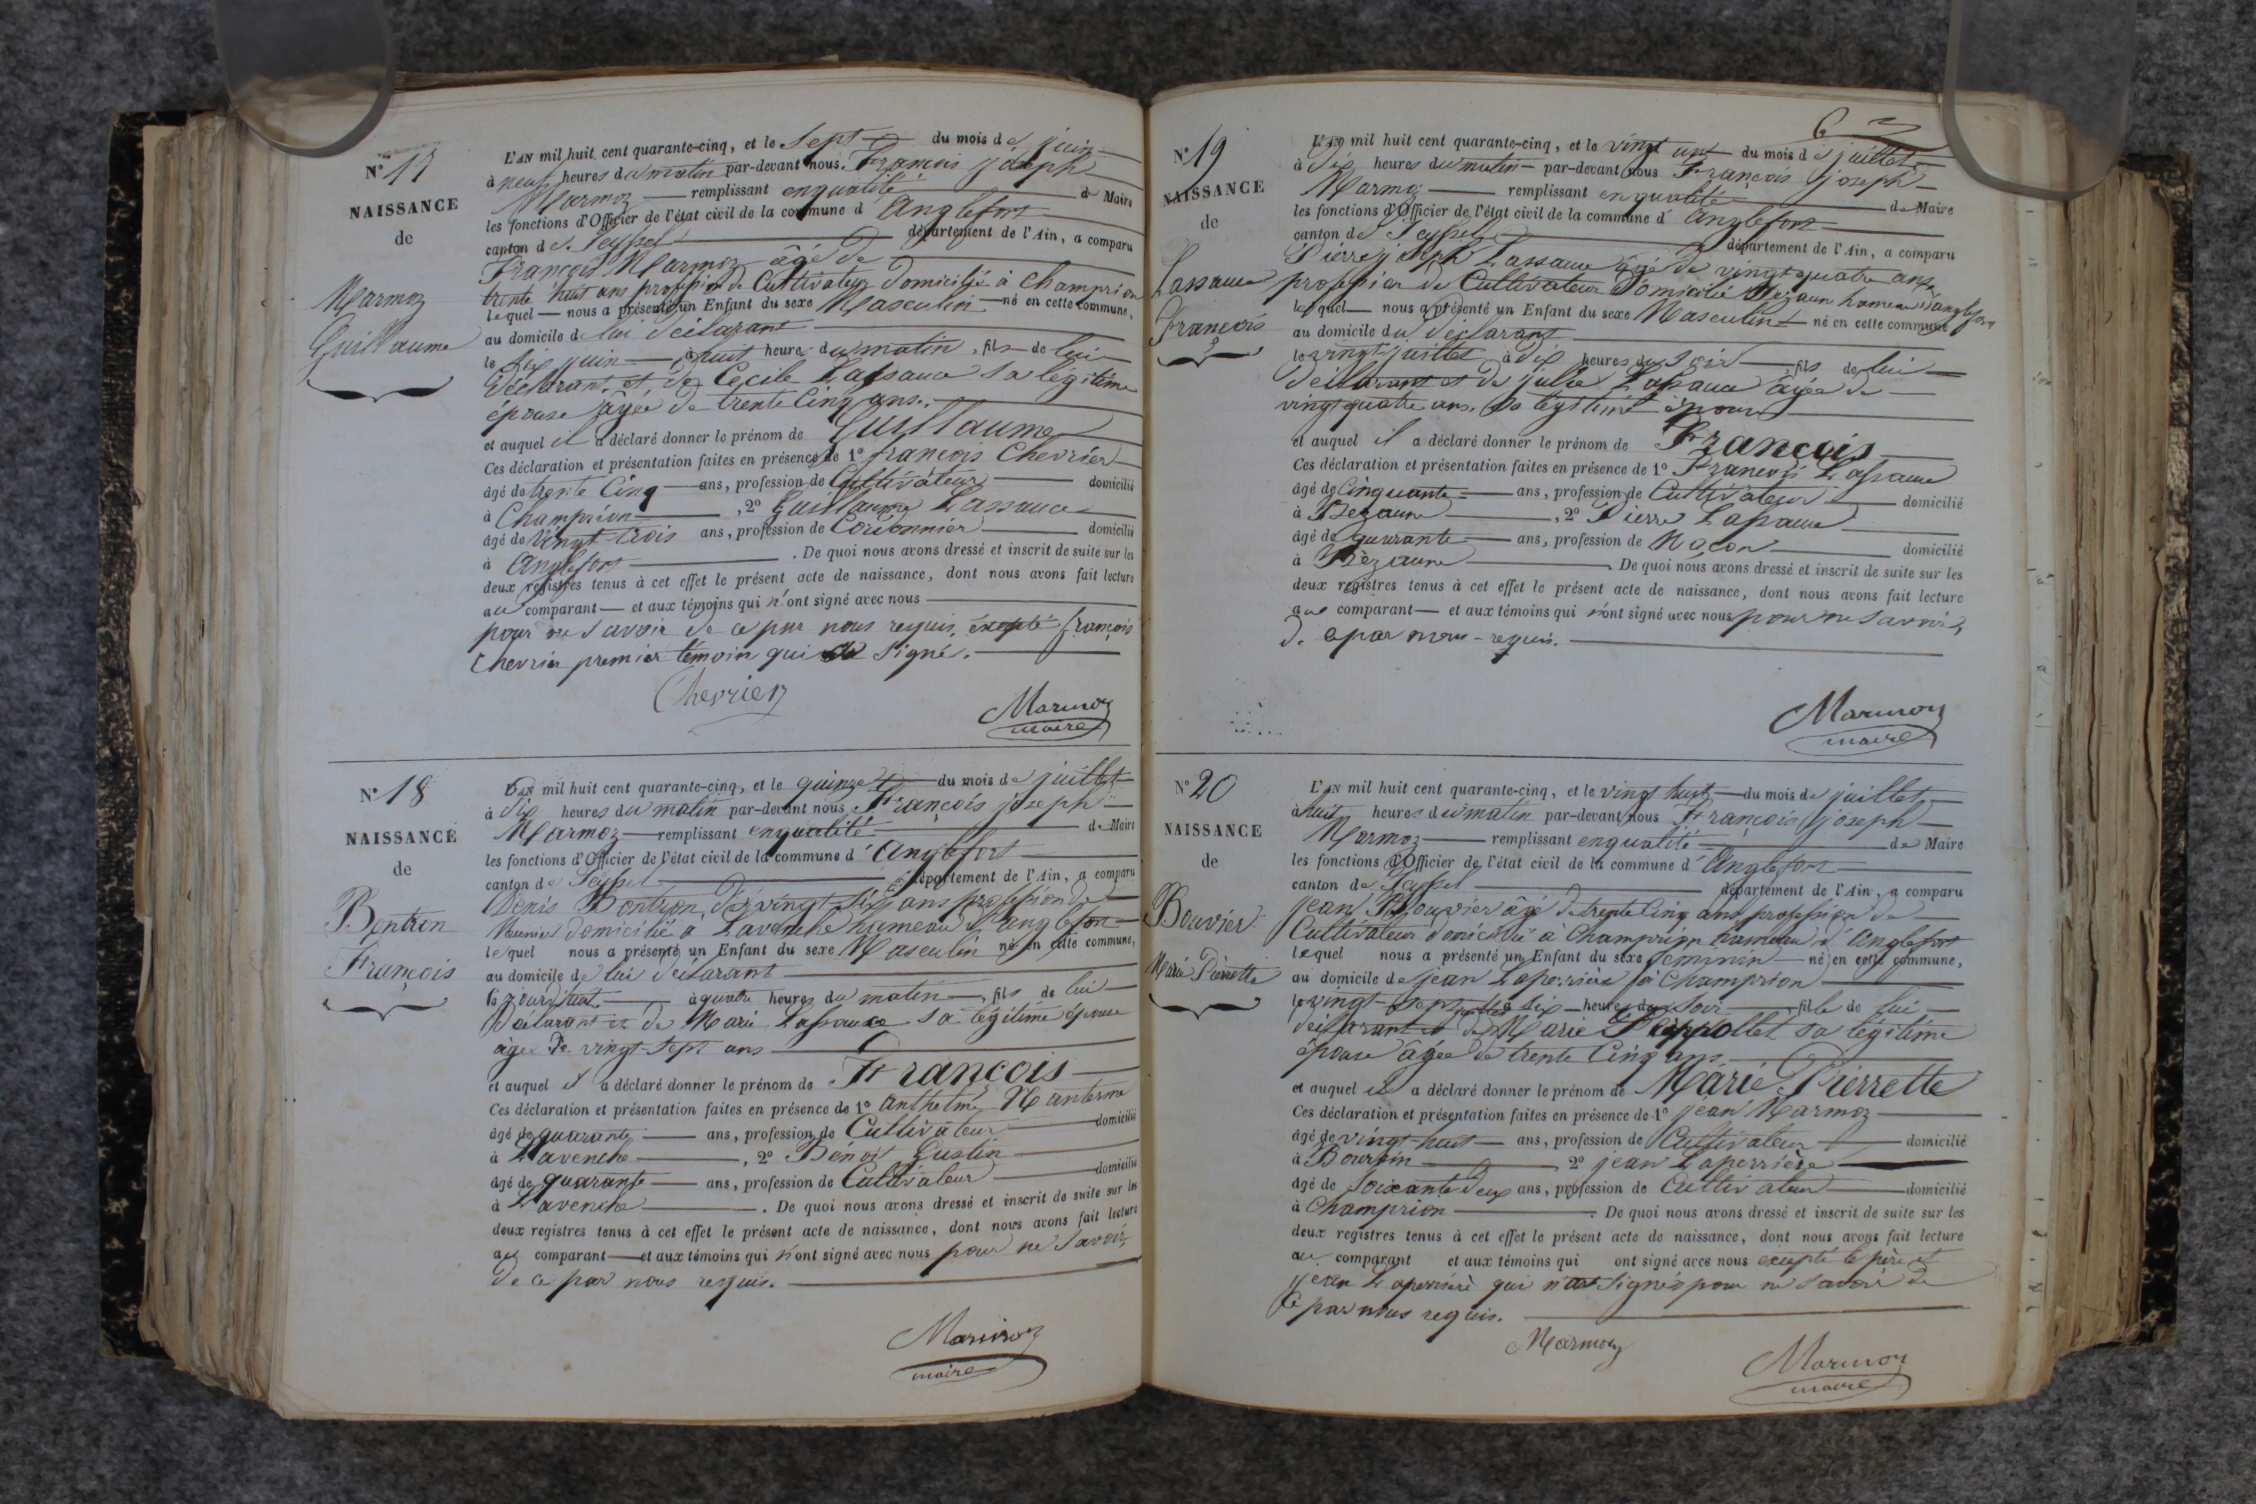 N° 17
NAISSANCE
de
Marmoz
Guillaume
L'AN mil huit cent quarante-cinq, et le Sept du mois de juin
à neuf heures du matin par-devant nous François joseph
Marmoz remplissant en qualité de Maire
les fonctions d'Officier de l'état civil de la commune d'Anglefort
canton de Seyssel département de l'Ain, a comparu
François Marmoz âgé de
trente huit ans profession de Cultivateur domicilié à Champrion
lequel nous a présenté un Enfant du sexe Masculin né en cette commune,
au domicile de lui déclarant
le six juin à huit heure du matin, fils de lui
déclarant et de Cécile Lassauce sa légitime
épouse âgée de trente Cinq ans.
et auquel il a déclaré donner le prénom de Guillaume
Ces déclaration et présentation faites en présence de 1° françois Chevrier
âgé de trente Cinq ans, profession de Cultivateur domicilié
à Champrion, 2° Guillaume Lassauce
âgé de vingt trois ans, profession de Cordonnier domicilié
à Anglefort. De quoi nous avons dressé et inscrit de suite sur les
deux registres tenus à cet effet le présent acte de naissance, dont nous avons fait lecture
au comparant et aux témoins qui n'ont signé avec nous
pour ne savoir de ce par nous requis, excepté françois
Chevrier premier témoin qui a signé.
Chevrier
Marmoz
maire
N° 18
NAISSANCE
de
Bontron
François
L'AN mil huit cent quarante-cinq, et le quinze du mois de juillet
à dix heures du matin par-devant nous François joseph
Marmoz remplissant en qualité de Maire
les fonctions d'Officier de l'état civil de la commune d'Anglefort
canton de Seyssel département de l'Ain, a comparu
Denis Bontron, de vingt six ans profession de
domicilié à Lavenche hameau d'anglefort
lequel nous a présenté un Enfant du sexe Masculin né en cette commune,
au domicile de lui déclarant
à quatre heures du matin, fils de lui
Déclarant et de Marie Lassauce sa légitime épouse
âgée de vingt-sept ans
et auquel il a déclaré donner le prénom de François
Ces déclaration et présentation faites en présence de 1° Anthelme Nanterme
âgé de quarante ans, profession de Cultivateur domicilié
à Lavenche, 2° Benoit Gustin
âgé de quarante ans, profession de Cultivateur domicilié
à Lavenche. De quoi nous avons dressé et inscrit de suite sur les
deux registres tenus à cet effet le présent acte de naissance, dont nous avons fait lecture
au comparant et aux témoins qui n'ont signé avec nous pour ne savoir
de ce par nous requis.
Marmoz
maire
6
N° 19
NAISSANCE
de
Lassauce
François
L'AN mil huit cent quarante-cinq, et le vingt un du mois de juillet
à dix heures du matin par-devant nous François joseph
Marmoz remplissant en qualité de Maire
les fonctions d'Officier de l'état civil de la commune d'Anglefort
canton de Seyssel département de l'Ain, a comparu
Pierre joseph Lassauce âgé de vingt quatre ans
profession de Cultivateur domicilié Bezaune hameau d'anglefort
lequel nous a présenté un Enfant du sexe Masculin né en cette commune
au domicile du déclarant
le vingt juillet à dix heures du soir, fils de lui
déclarant et de julie Lassauce âgée de
vingt quatre ans, sa légitime épouse
et auquel il a déclaré donner le prénom de François
Ces déclaration et présentation faites en présence de 1° François Lassauce
âgé de Cinquante ans, profession de Cultivateur domicilié
à Bezaune, 2° Pierre Lassauce
âgé de quarante ans, profession de Maçon domicilié
à Bèzaune De quoi nous avons dressé et inscrit de suite sur les
deux registres tenus à cet effet le présent acte de naissance, dont nous avons fait lecture
au comparant et aux témoins qui n'ont signé avec nous pour ne savoir,
de ce par nous requis.
Marmoz
maire
N° 20
NAISSANCE
de
Bouvier
Marie Pierrette
L'AN mil huit cent quarante-cinq, et le vingt huit du mois de juillet
à huit heures du matin par-devant nous François joseph
Marmoz remplissant en qualité de Maire
les fonctions d'Officier de l'état civil de la commune d'Anglefort
canton de Seyssel département de l'Ain, a comparu
jean Bouvier âgé de trente Cinq ans profession de
Cultivateur domicilié à Champrion hameau d'anglefort
lequel nous a présenté un Enfant du sexe feminin né en cette commune,
au domicile de jean Laperrière à Champrion
le vingt-sept juillet à six heures du soir, fille de lui
déclarant et de Marie sa légitime
épouse âgée de trente Cinq ans
et auquel il a déclaré donner le prénom de Marie Pierrette
Ces déclaration et présentation faites en présence de 1° jean Marmoz
âgé de vingt-huit ans, profession de Cultivateur domicilié
à Boursin 2° jean Laperrière
âgé de soixante deux ans, profession de Cultivateur domicilié
à Champrion. De quoi nous avons dressé et inscrit de suite sur les
deux registres tenus à cet effet le présent acte de naissance, dont nous avons fait lecture
au comparant et aux témoins qui ont signé avec nous excepté le père et
jean Laperrière qui n'ont signés pour ne savoir de
Ce par nous requis.
Marmoz
Marmoz
maire